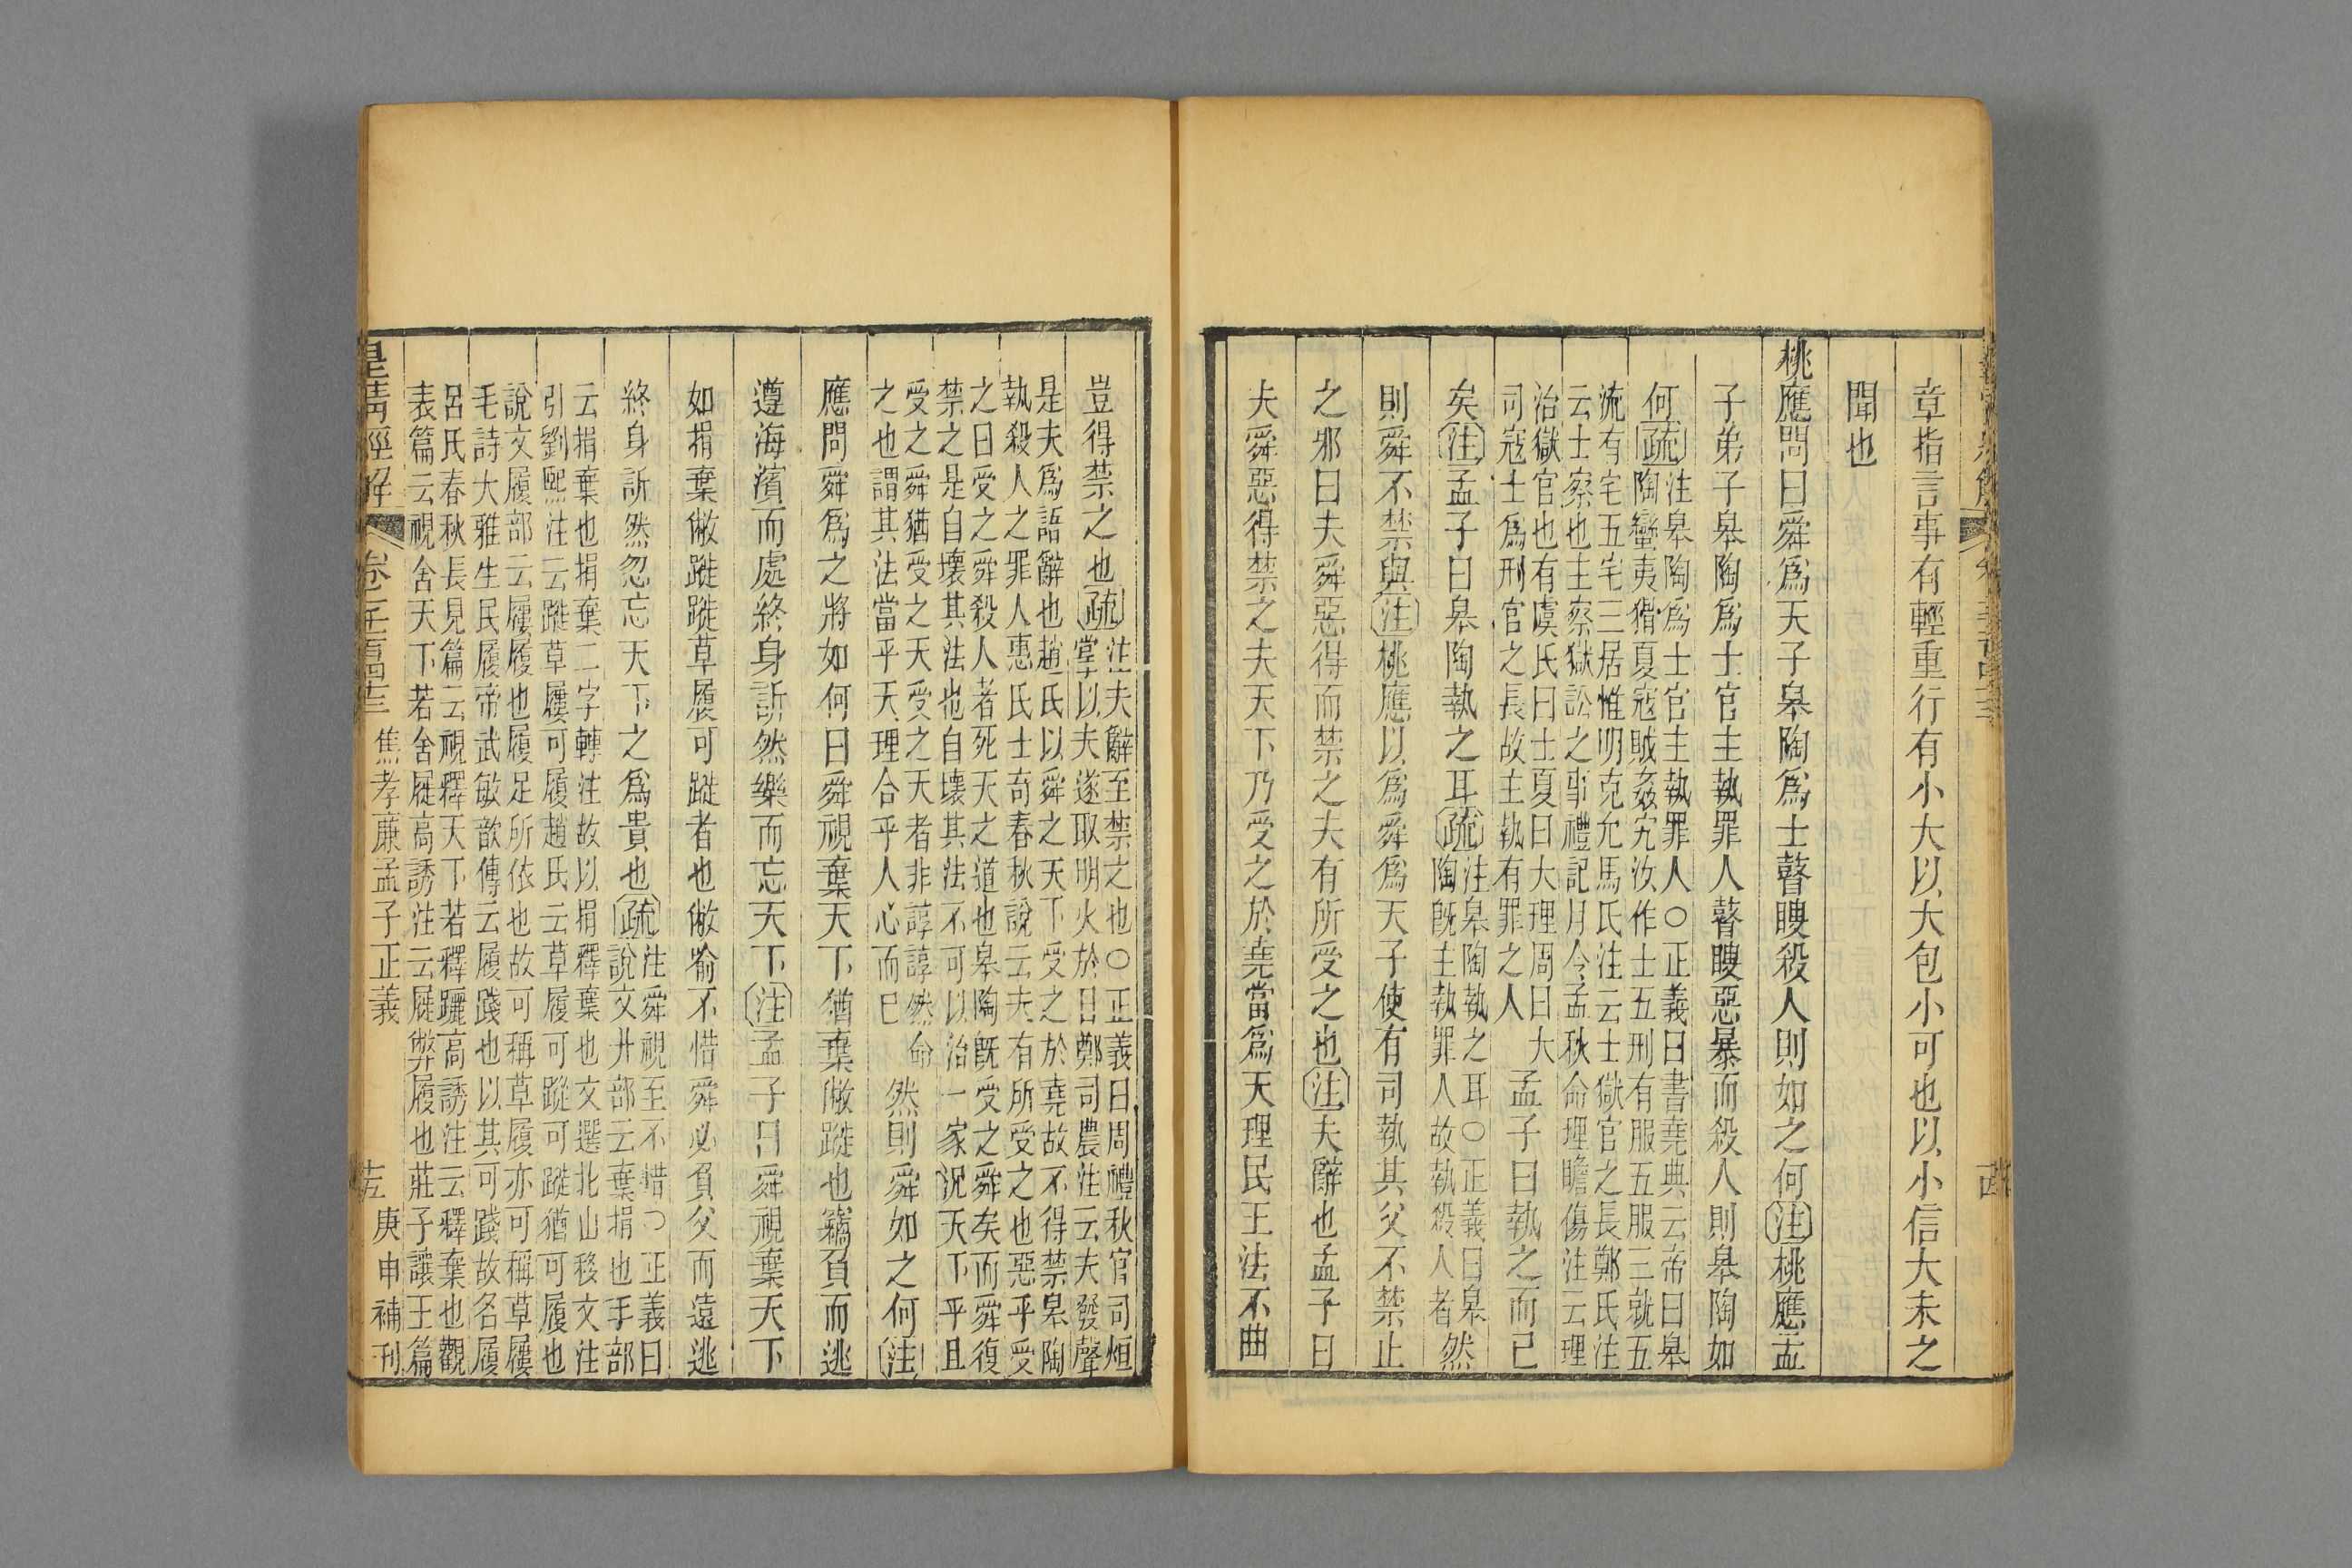 章指言事有輕重行有小大以大包小可也以小信大未之
聞也
桃應問曰舜爲天子皋陶爲士瞽瞍殺人則如之何注桃應孟
子弟子皋陶爲士官主執罪人瞽瞍惡暴而殺人則皋陶如
何疏注皋陶爲士官主執罪人○正義曰書堯典云帝曰皋
陶蠻夷猾夏寇賊姦宄汝作士五刑有服五服三就五
流有宅五宅三居惟明克允馬氏注云士獄官之長鄭氏注
云士察也主察獄訟之事禮記月令孟秋命理瞻傷注云理
治獄官也有虞氏曰士夏曰大理周曰大
司寇士爲刑官之長故主執有罪之人
孟子曰執之而已
矣注孟子曰皋陶執之耳疏注皋陶執之耳○正義曰皋
陶旣主執罪人故執殺人者
然
則舜不禁與注桃應以爲舜爲天子使有司執其父不禁止
之邪曰夫舜惡得而禁之夫有所受之也注夫辭也孟子曰
夫舜惡得禁之夫天下乃受之於堯當爲天理民王法不曲
豈得禁之也疏注夫辭至禁之也○正義曰周禮秋官司烜
堂以夫遂取明火於日鄭司農注云夫發聲
是夫爲語辭也趙氏以舜之天下受之於堯故不得禁皋陶
執殺人之罪人惠氏士奇春秋說云夫有所受之也惡乎受
之曰受之舜殺人者死天之道也皋陶旣受之舜矣而舜復
禁之是自壞其法也自壞其法不可以治一家況天下乎且
受之舜猶受之天受之天者非諄諄然命
之也謂其法當乎天理合乎人心而已
然則舜如之何注
應問舜爲之將如何曰舜視棄天下猶棄敝蹝也竊負而逃
遵海濱而處終身訢然樂而忘天下注孟子曰舜視棄天下
如捐棄敝蹝蹝草履可蹝者也敝喻不惜舜必負父而遠逃
終身訢然忽忘天下之爲貴也疏注舜視至不惜○正義曰
說文廾部云棄捐也手部
云捐棄也捐棄二字轉注故以捐釋棄也文選北山移文注
引劉熙注云蹝草屨可履趙氏云草履可蹝可蹝猶可履也
說文履部云屨履也履足所依也故可稱草履亦可稱草屨
毛詩大雅生民履帝武敏歆傳云履踐也以其可踐故名履
呂氏春秋長見篇云視釋天下若釋躧高誘注云釋棄也觀
表篇云視舍天下若舍屣高誘注云屣弊履也莊子讓王篇
皇淸經解 卷一千百四十三 焦孝廉孟子正義 十五 庚申補刊